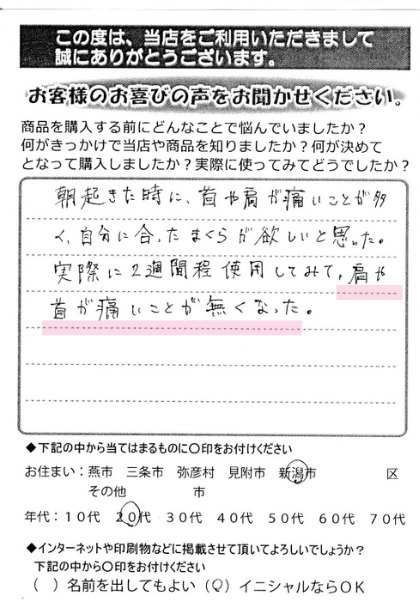 この度は、当店をご利用いただきまして
誠にありがとうございます。
お客様のお喜びの声をお聞かせください。
商品を購入する前にどんなことで悩んでいましたか？
何がきっかけで当店や商品を知りましたか？何が決めて
となって購入しましたか？実際に使ってみてどうでしたか？
朝起きた時に、首や肩が痛いことが多
く、自分に合ったまくらが欲しいと思った。
実際に2週間程使用してみて、肩や
首が痛いことが無くなった。
◆下記の中から当てはまるものに〇印をお付けください
お住まい：燕市 三条市 弥彦村 見附市 新潟市 区
その他 市
年代：１０代 ２０代 ３０代 ４０代 ５０代 ６０代 ７０代
◆インターネットや印刷物などに掲載させて頂いてよろしいでしょうか？
下記の中から〇印をお付けください
（ ）名前を出してもよい（〇）イニシャルならＯＫ